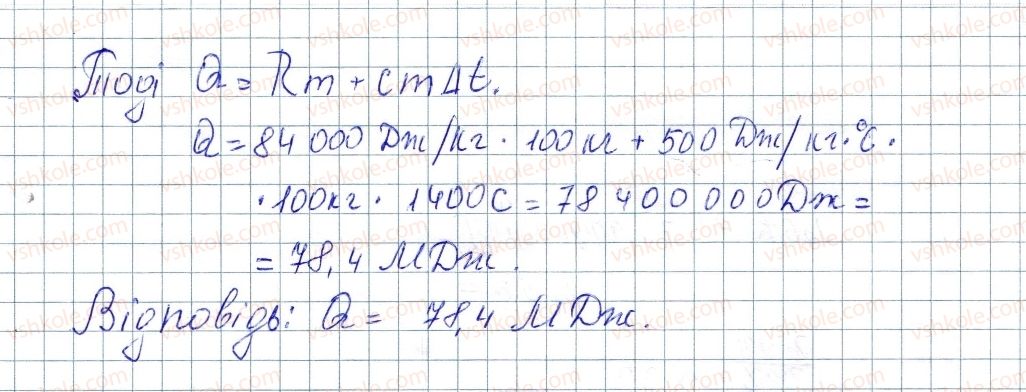 Тоді Q = Rm + cmΔt.
Q = 84 000 Дж/кг · 100 кг + 500 Дж/кг·°С ·
· 100кг · 1400С = 78 400 000 Дж =
= 78,4 МДж.
Відповідь: Q = 78,4 МДж.